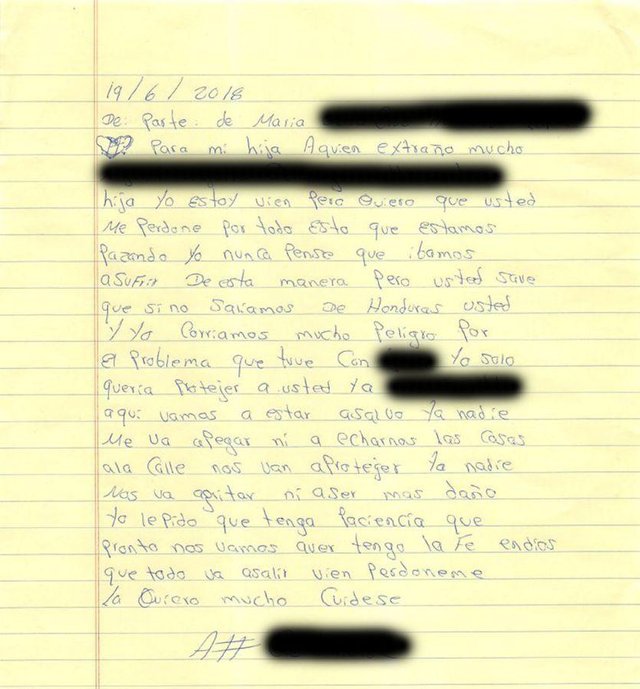 19/6/2018
De: Parte: de Maria
Para mi hija Aquien extraño mucho
hija Yo estoy vien pero Quiero que usted
Me Perdone por todo esto que estamos
pazando Yo nunca Pense que ibamos
asufrir De esta manera Pero usted save
que si no Saliamos De Honduras usted
Y Yo Corriamos mucho Peligro Por
el Problema que tuve Con Yo solo
queria Protejer a usted Ya
aqui vamos a estar asalvo Ya nadie
Me va apegar ni a echarnos las cosas
ala Calle nos van aprotejer Ya nadie
Nos va agritar ni aser mas daño
Yo le Pido que tenga Paciencia que
pronto nos vamos aver tengo la Fe endios
que todo va asalir vien Perdoneme
La Quiero mucho Cuidese
Att